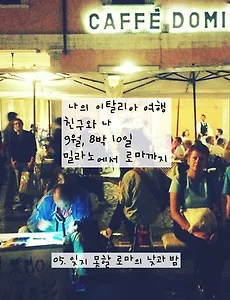 CAFFÈ DOMI
나의 이탈리아 여행
친구와 나
9월, 8박 10일
밀라노에서 로마까지
05. 잊지 못할 로마의 낮과 밤